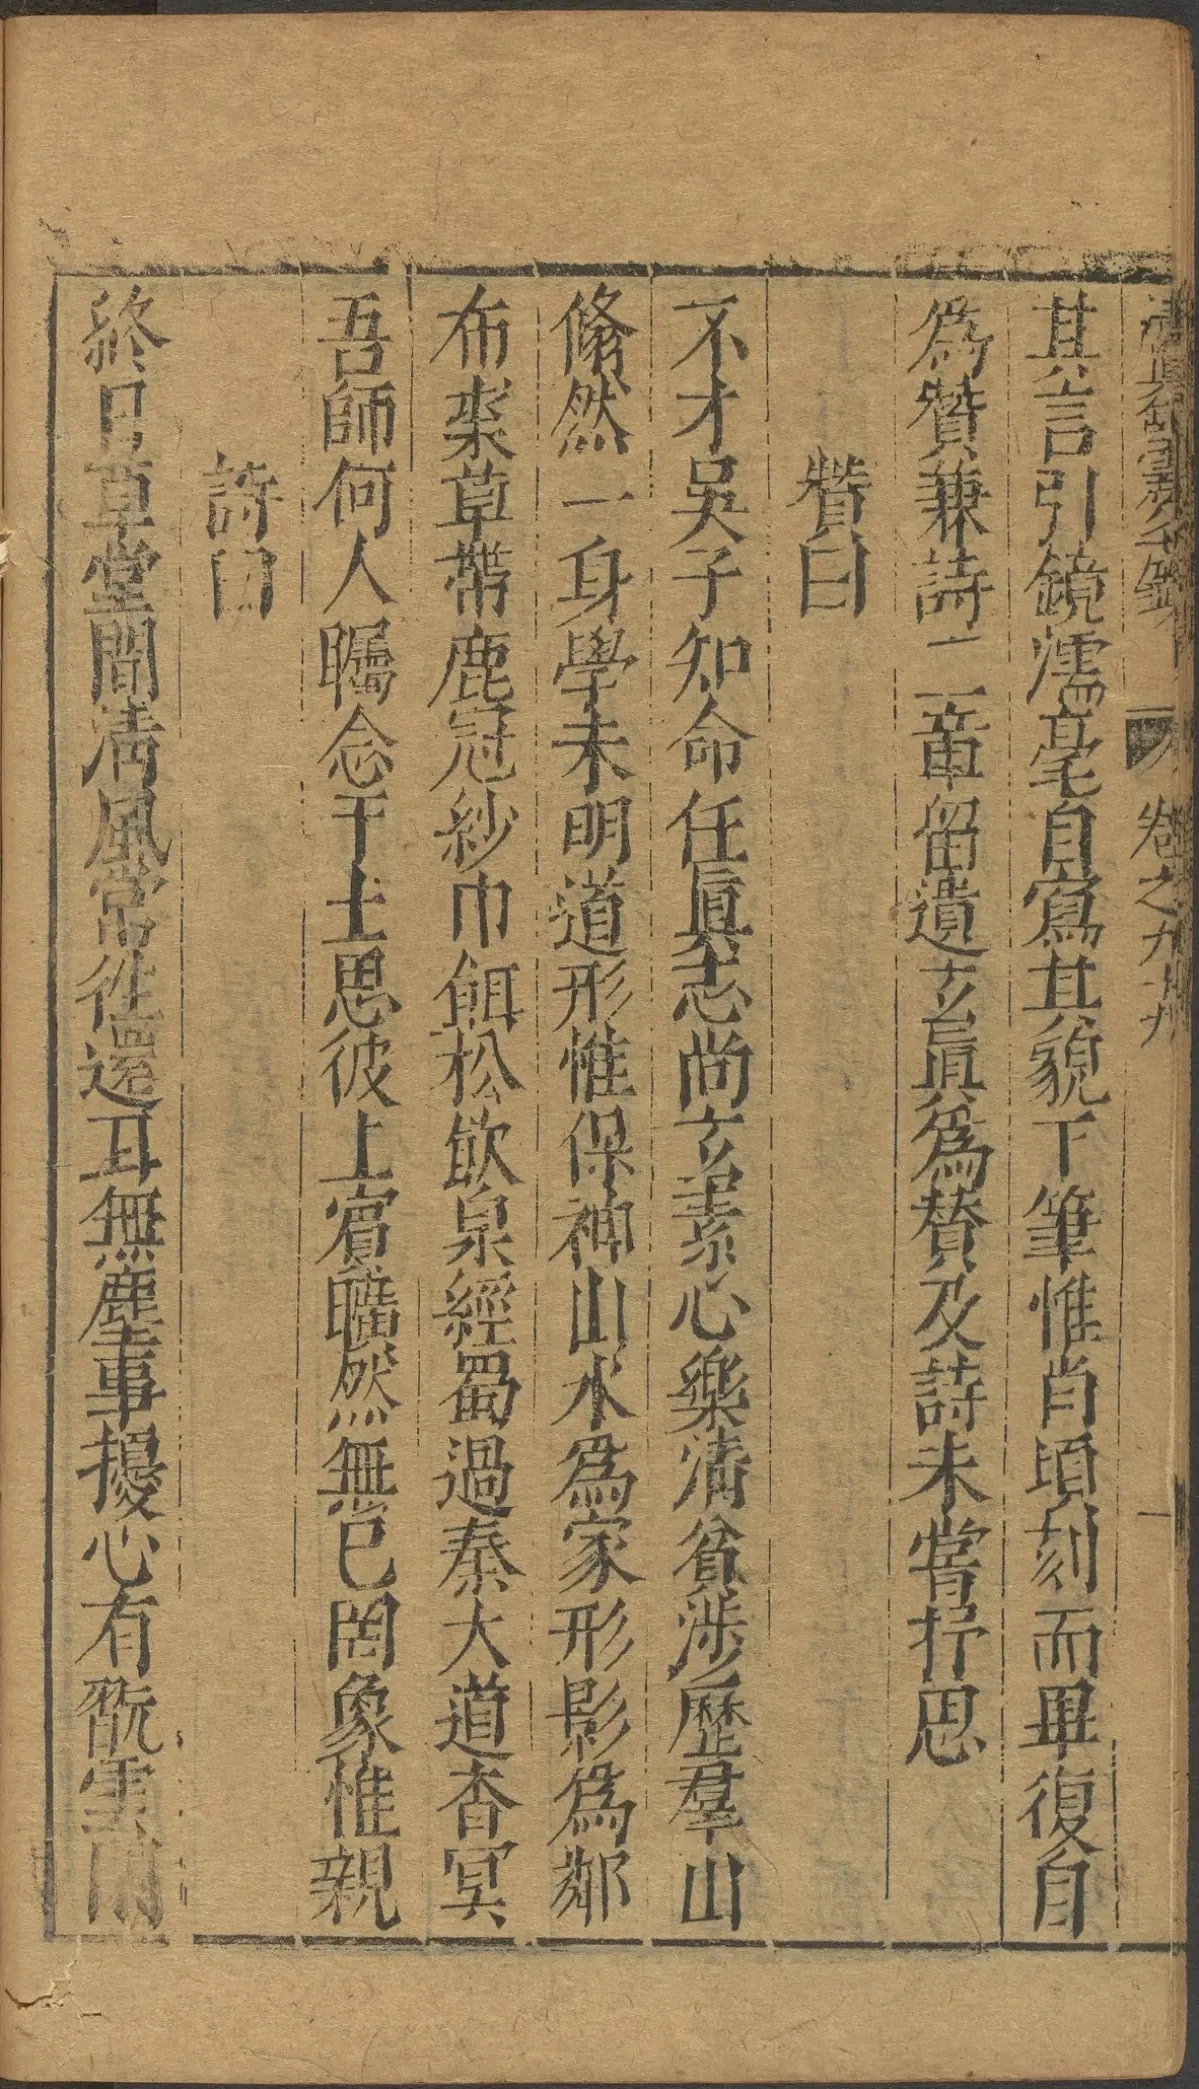 卷之九 九
其言引鏡濡毫自寫其貌下筆惟肖頃刻而畢復自
為贊兼詩二章留遺玄眞為贊及詩未嘗抒思
贊曰
不才吳子知命任眞志尚玄素心樂清貧涉歷羣山
翛然一身學未明道形惟保神山水為家形影為鄰
布裘草帶鹿冠紗巾餌松飲泉經蜀過秦大道杳冥
吾師何人矚念下土思彼上賓曠然無已罔象惟親
詩曰
終日草堂間清風常往還耳無塵事擾心有翫雲閒